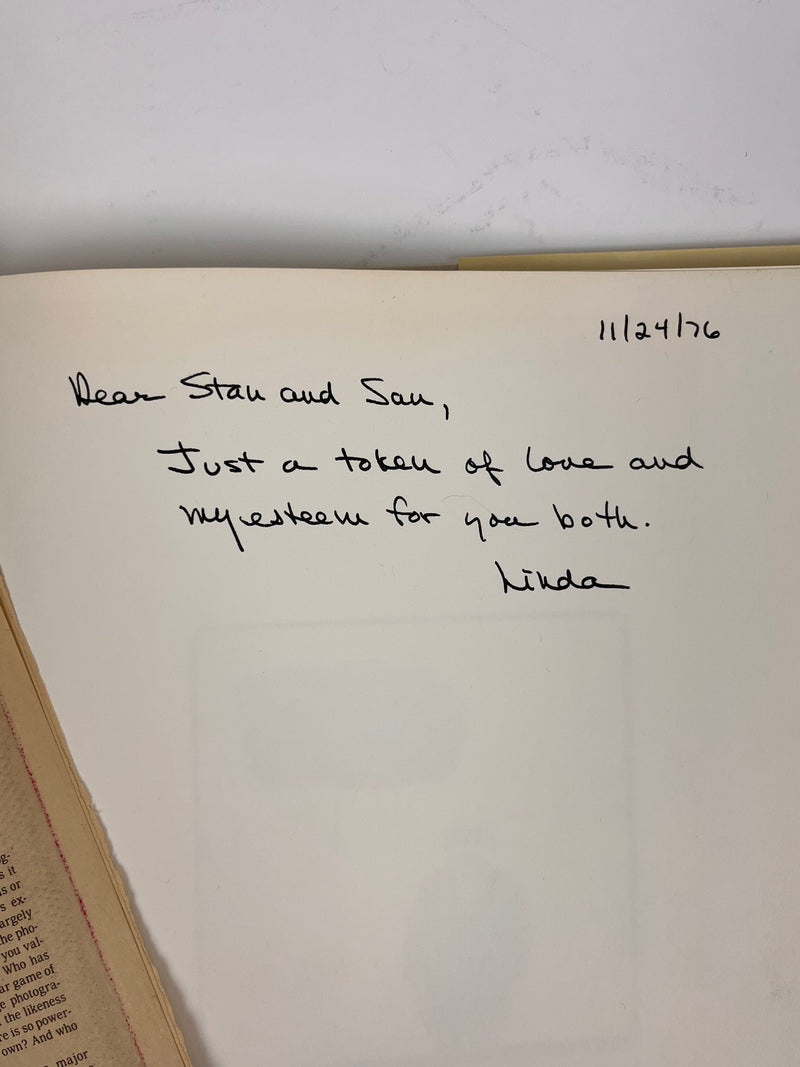 11/24/76
Dear Stan and San,
Just a token of love and
my esteem for you both.
Linda
g-
s it
s or
s ex-
argely
he pho-
you val-
Who has
ar game of
e photogra-
the likeness
re is so power-
own? And who
major